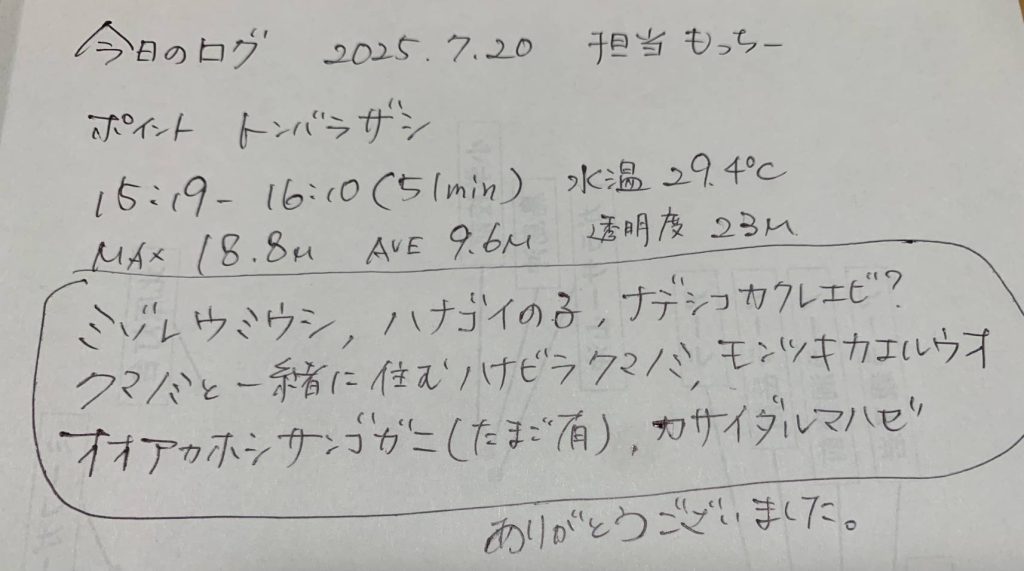 今日のログ 2025.7.20 担当 もっちー
ポイント トンバラザシ
15:19-16:10(51min) 水温 29.4℃
MAX 18.8M AVE 9.6M 透明度 23M
ミゾレウミウシ, ハナゴイの子, ナデシコカクレエビ?
クマノミと一緒に住むハナビラクマノミ, モンツキカエルウオ
オオアカホシサンゴガニ(たまご有), カサイダルマハゼ
ありがとうございました。